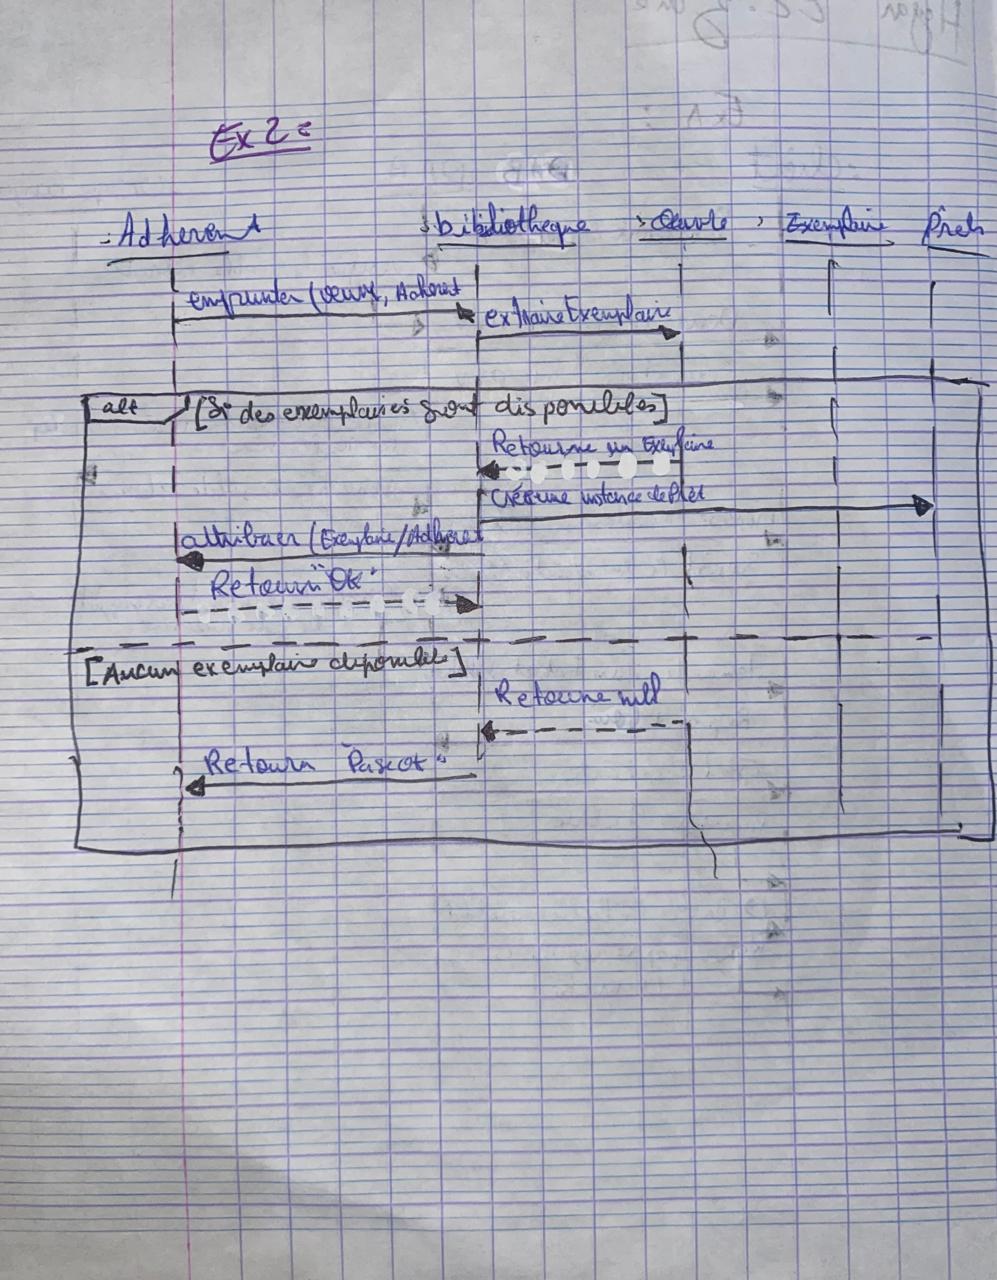 Ex 2 :
: Adherent
: bibidiotheque
: Oeuvre
: Exemplaire
Prêt
emprunter (oeuvre, Adherent
extraireExemplaire
alt
[Si des exemplaires sont disponibles]
Retourne un Exemplaire
Crée une instance de Prêt
attribuer (Exemplaire/Adherent
Retourn "OK"
[Aucun exemplaire disponible]
Retourne null
Retourn "Pas cot"